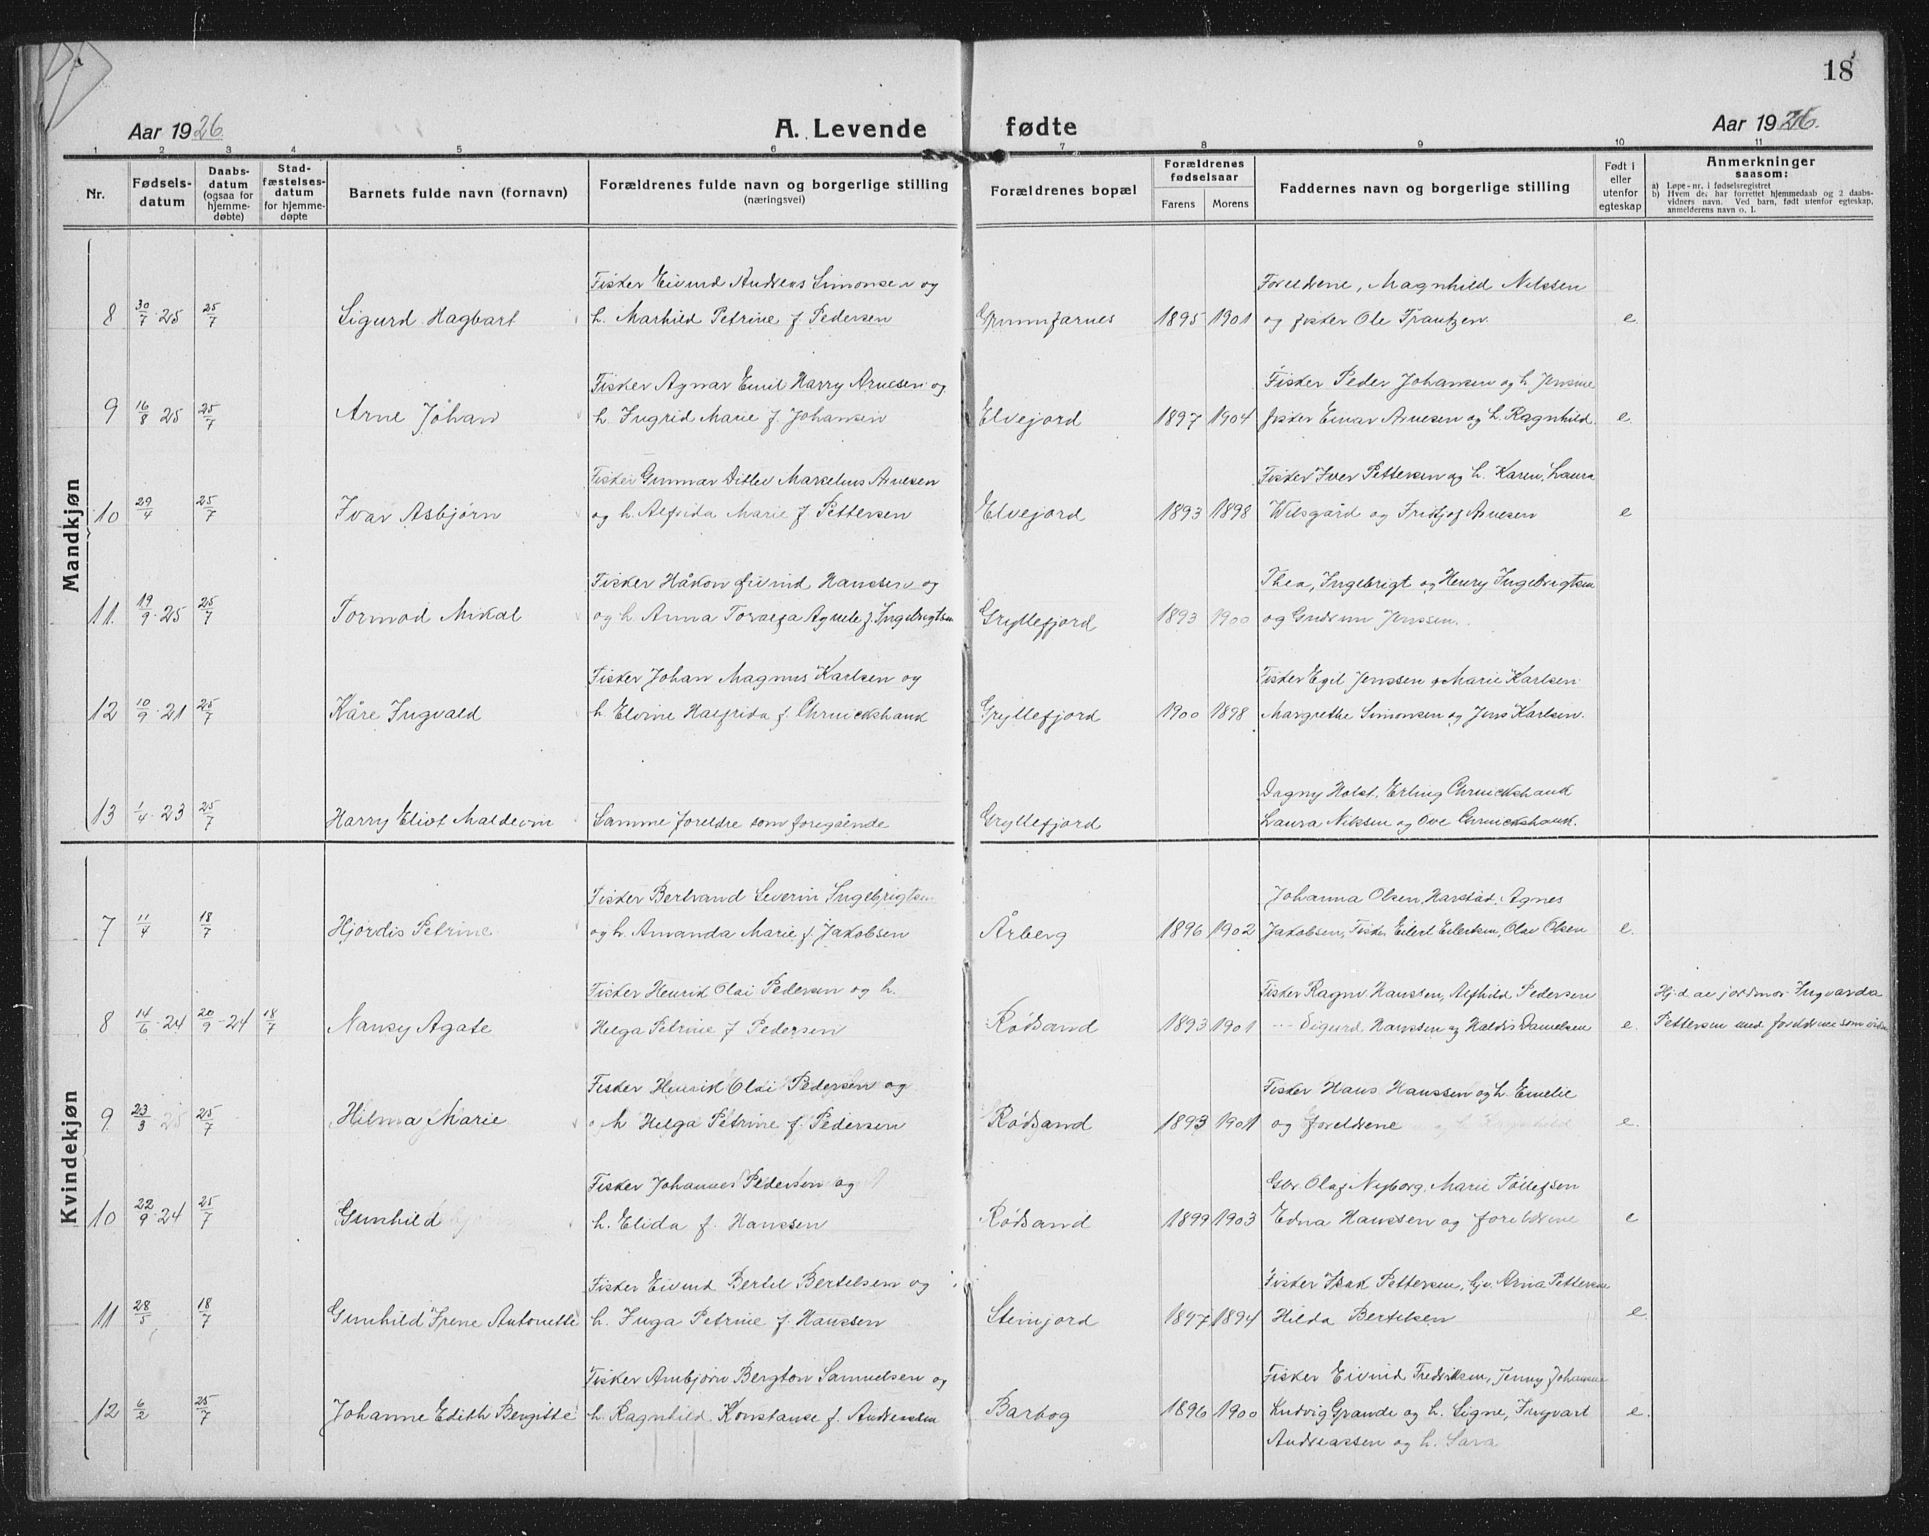 18
Aar 1926. A. Levende fødte Aar 1926.
1 2 3 4 5 6 7 8 9 10 11
Nr.
Fødsels-
datum
Daabs-
datum
(ogsaa for
hjemme-
døbte)
Stad-
fæstelses-
datum
for hjemme-
døpte
Barnets fulde navn (fornavn)
Forældrenes fulde navn og borgerlige stilling
(næringsvei)
Forældrenes bopæl
Forældrenes
fødselsaar
Farens Morens
Faddernes navn og borgerlige stilling
Født i
eller
utenfor
egteskap
Anmerkninger
saasom:
a) Løpe-nr. i fødselsregistret
b) Hvem der har forrettet hjemmedaab og 2 daabs-
vidners navn. Ved barn, født utenfor egteskap,
anmelderens navn o. l.
Mandkjøn
Fisker Eivind Andreas Simonsen og Foreldrene, Magnhild Nilssen
8 30/7 25 25/7 Sigurd Hagbart h. Marhild Petrine f. Pedersen 1895 1901 og fisker Ole Frantzen. e
Fisker Agnar Emil Harry Arnesen og Fisker Peder Johansen og h. Jensine
9 16/8 25 25/7 Arne Johan h. Ingrid Marie f. Johansen Elvejord 1897 1904 fisker Einar Arnesen og h. Ragnhild. e.
Fisker Gunnar Ditlev Marselius Arnesen Fisker Iver Pettersen og h. Karen, Laura
10 29/4 25/7 Ivar Asbjørn og h. Alfrida Marie f. Pettersen Elvejord 1893 1898 Wilsgård og Fridtjof Arnesen e
Fisker Håkon Eivind Hanssen og Thea, Ingebrigt og Henry Ingebrigtsen
11. 19/9 25 25/7 Tormod Mikal og h. Anna Toralfa Agnete f. Ingebrigtsen Gryllefjord 1893 1900 og Gudrun Jenssen.
Fisker Johan Magnus Karlsen og Fisker Egil Jenssen, Marie Karlsen
12 10/9 21 25/7 Kåre Ingvald h. Elvine Halfrida f. Chruickshank Gryllefjord 1900 1898 Margrethe Simonsen og Jens Karlsen.
Dagny Holst, Erling Chruickshank
13 1/4 23 25/7 Harry Eliot Maldevin Samme foreldre som foregående Gryllefjord Laura Nilssen og Ove Chruickshank.
Kvindekjøn
Fisker Bertrand Severin Ingebrigtsen Johanna Olsen, Harstad, Agnes
7 11/4 18/7 Hjørdis Petrine og h. Amanda Marie f. Jakobsen Årberg 1896 1902 Jakobsen, Fisker Eilert Eilertsen, Olav Olsen e.
Fisker Henrik Olai Pedersen og h. Fisker Ragnv Hanssen, Alfhild Pedersen Hj.d av jordmor Ingvarda
8 14/6 24 20/9 24 18/7 Nansy Agate Helga Petrine f. Pedersen Rødsand 1893 1901 Sigurd Hanssen og Haldis Danielsen e. Pettersen med foreldrene som
Fisker Henrik Olai Pedersen og Fisker Hans Hanssen og h. Emelie
9 23/3 25 25/7 Hilma Marie h Helga Petrine f. Pedersen Rødsand 1893 1901 og foreldrene e.
Fisker Johannes Pedersen og Gbr. Olaf Nyborg, Marie Tollefsen
10 22/9 24 25/7 Gunhild h. Elida f. Hanssen Rødsand 1899 1903 Edna Hanssen og foreldrene e
Fisker Eivind Bertel Bertelsen og Fisker Isak Pettersen, Gj. Arna Pettersen
11 28/5 18/7 Gunhild Irene Antonette h. Inga Petrine f. Hanssen Steinjord 1897 1894 Hilda Bertelsen e
Fisker Arnbjørn Bergton Samuelsen og Fisker Eivind Fredriksen, Jenny Johansen
12 6/2 25/7 Johanne Edith Bergitte h. Ragnhild Konstanse f. Andreassen Barbog 1896 1900 Ludvig Grande og h. Signe, Ingvart e.
Andreassen og h. Sara